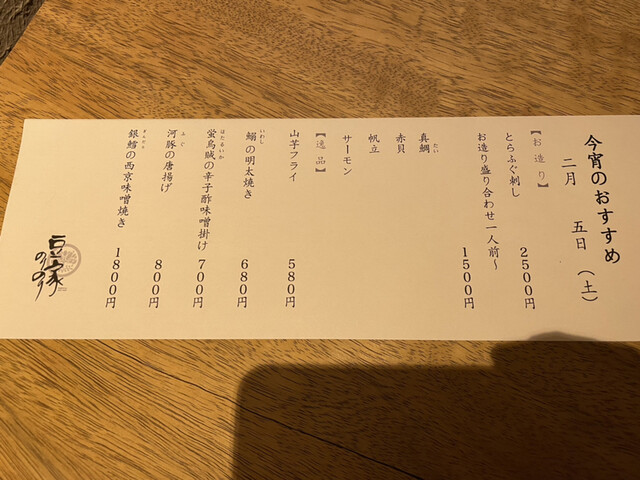 今宵のおすすめ
二月　五日　（土）
【お造り】
とらふぐ刺し　2500円
お造り盛り合わせ一人前〜　1500円
真鯛
たい
赤貝
帆立
サーモン
【逸品】
山芋フライ　580円
鰯の明太焼き　680円
いわし
蛍烏賊の辛子酢味噌掛け　700円
ほたるいか
河豚の唐揚げ　800円
ふぐ
銀鱈の西京味噌焼き　1800円
ぎんだら
豆家
のの